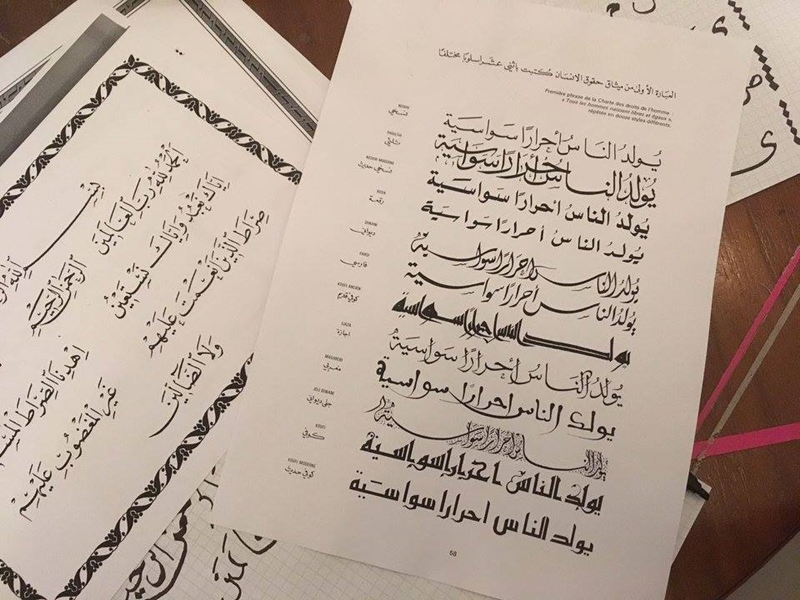 العبارة الأولى من ميثاق حقوق الانسان كُتبت باثني عشر اسلوبًا مختلفًا
Première phrase de la Charte des droits de l'homme :
« Tous les hommes naissent libres et égaux »,
répétée en douze styles différents.
نسخي
يُولدُ الناسُ أحرارًا سواسيةً
ثلثي
يُولدُ الناسُ أحرارًا سواسيةً
نسخي حديث
يُولدُ الناسُ أحرارًا سواسيةً
رقعة
يُولدُ الناسُ أحرارًا سواسية
ديواني
يُولدُ الناس احرارًا سواسيةً
فارسي
يُولدُ الناس أحرارًا سواسية
كوفي قديم
يولد الناس احرارا سواسية
اجازة
يُولدُ الناسُ أحرارًا سواسيةً
مغربي
يولد الناس احرارا سواسية
جلي ديواني
يولد الناس احرارًا سواسية
كوفي
يولد الناس احرارا سواسية
كوفي حديث
يولد الناس احرارا سواسية
68
بِسْمِ
اَلْحَمْدُ لِلّٰهِ رَبِّ الْعَالَمِينَ
الرَّحْمٰنِ الرَّحِيمِ
اِيَّاكَ نَعْبُدُ وَاِيَّاكَ نَسْتَعِينُ
اِهْدِنَا الصِّرَاطَ
صِرَاطَ الَّذِينَ اَنْعَمْتَ عَلَيْهِمْ
غَيْرِ الْمَغْضُوبِ عَلَيْهِمْ
وَلَا الضَّالِّينَ